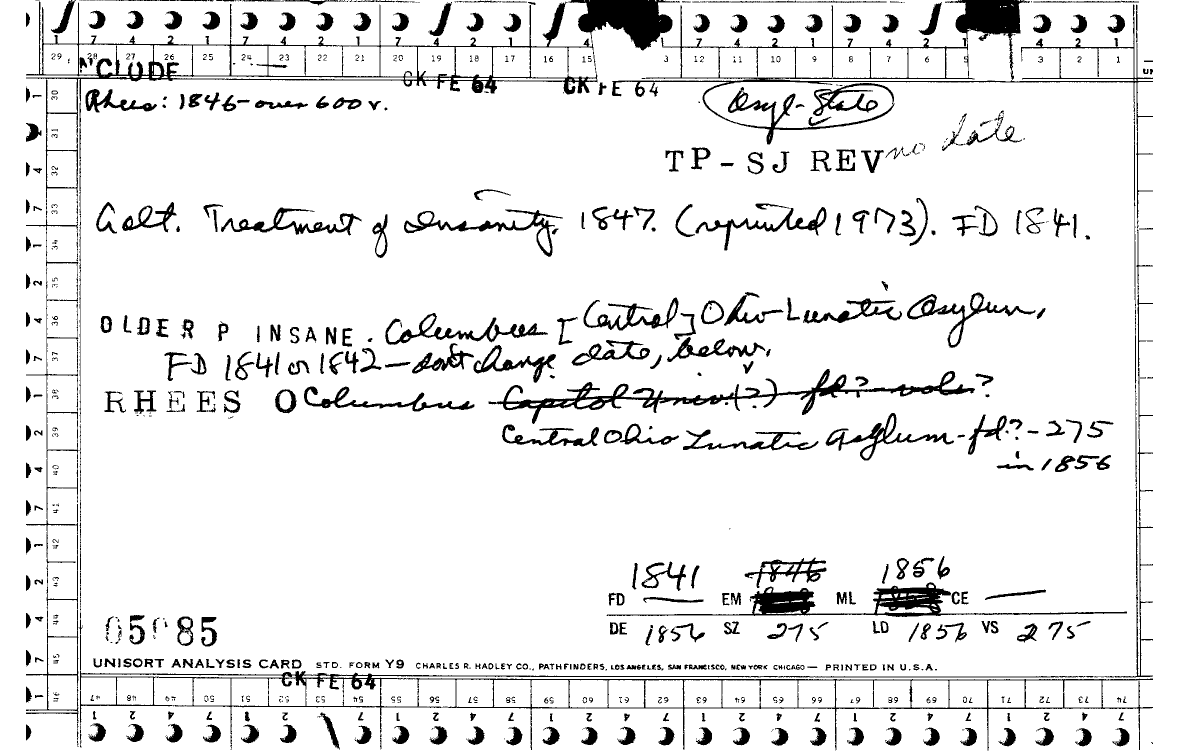 7 4 2 1 7 4 2 1 7 4 2 1 7 4 2 1 7 4 2 1 4 2 1
29 28 27 26 25 24 23 22 21 20 19 18 17 16 15 3 12 11 10 9 8 7 6 5 3 2 1
NCLUDE CK FE 64 CK FE 64
Rhees: 1846-over 600 v.
Asyl-State
TP-SJ REV no date
Galt. Treatment of Insanity. 1847. (reprinted 1973). FD 1841.
OLDER P INSANE. Columbus [Central] Ohio Lunatic Asylum,
FD 1841 or 1842 - don't change date, below.
RHEES O Columbus Capitol Univ.(?) fd? vols?
Central Ohio Lunatic Asylum - fd? - 275
in 1856
1841 1846 1856
FD EM ML CE
DE 1856 SZ 275 LD 1856 VS 275
05985
UNISORT ANALYSIS CARD STD. FORM Y9 CHARLES R. HADLEY CO., PATHFINDERS, LOS ANGELES, SAN FRANCISCO, NEW YORK CHICAGO — PRINTED IN U.S.A.
CK FE 64
47 48 49 50 51 52 53 54 55 56 57 58 59 60 61 62 63 64 65 66 67 68 69 70 71 72 73 74
1 2 4 7 1 2 4 7 1 2 4 7 1 2 4 7 1 2 4 7 1 2 4 7 1 2 4 7